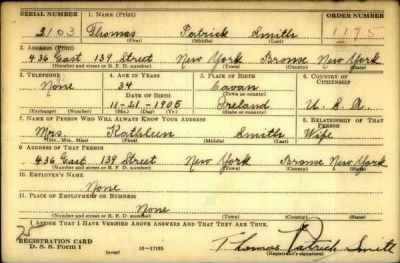 SERIAL NUMBER 1. NAME (Print) ORDER NUMBER
2103 Thomas Patrick Smith 1175
(First) (Middle) (Last)
2. ADDRESS (Print)
436 East 139 Street New York Bronx New York
(Number and street or R. F. D. number) (Town) (County) (State)
3. TELEPHONE 4. AGE IN YEARS 5. PLACE OF BIRTH 6. COUNTRY OF CITIZENSHIP
None 34 Cavan
DATE OF BIRTH (Town or county)
11-21-1905 Ireland U. S. A.
(Exchange) (Number) (Mo.) (Day) (Yr.) (State or country)
7. NAME OF PERSON WHO WILL ALWAYS KNOW YOUR ADDRESS 8. RELATIONSHIP OF THAT PERSON
Mrs. Kathleen Smith Wife
(Mr., Mrs., Miss) (First) (Middle) (Last)
9. ADDRESS OF THAT PERSON
436 East 139 Street New York Bronx New York
(Number and street or R. F. D. number) (Town) (County) (State)
10. EMPLOYER'S NAME
None
11. PLACE OF EMPLOYMENT OR BUSINESS
None
(Number and street or R. F. D. number) (Town) (County) (State)
I AFFIRM THAT I HAVE VERIFIED ABOVE ANSWERS AND THAT THEY ARE TRUE.
REGISTRATION CARD
D. S. S. Form 1 16-17105 Thomas Patrick Smith
(Registrant's signature)